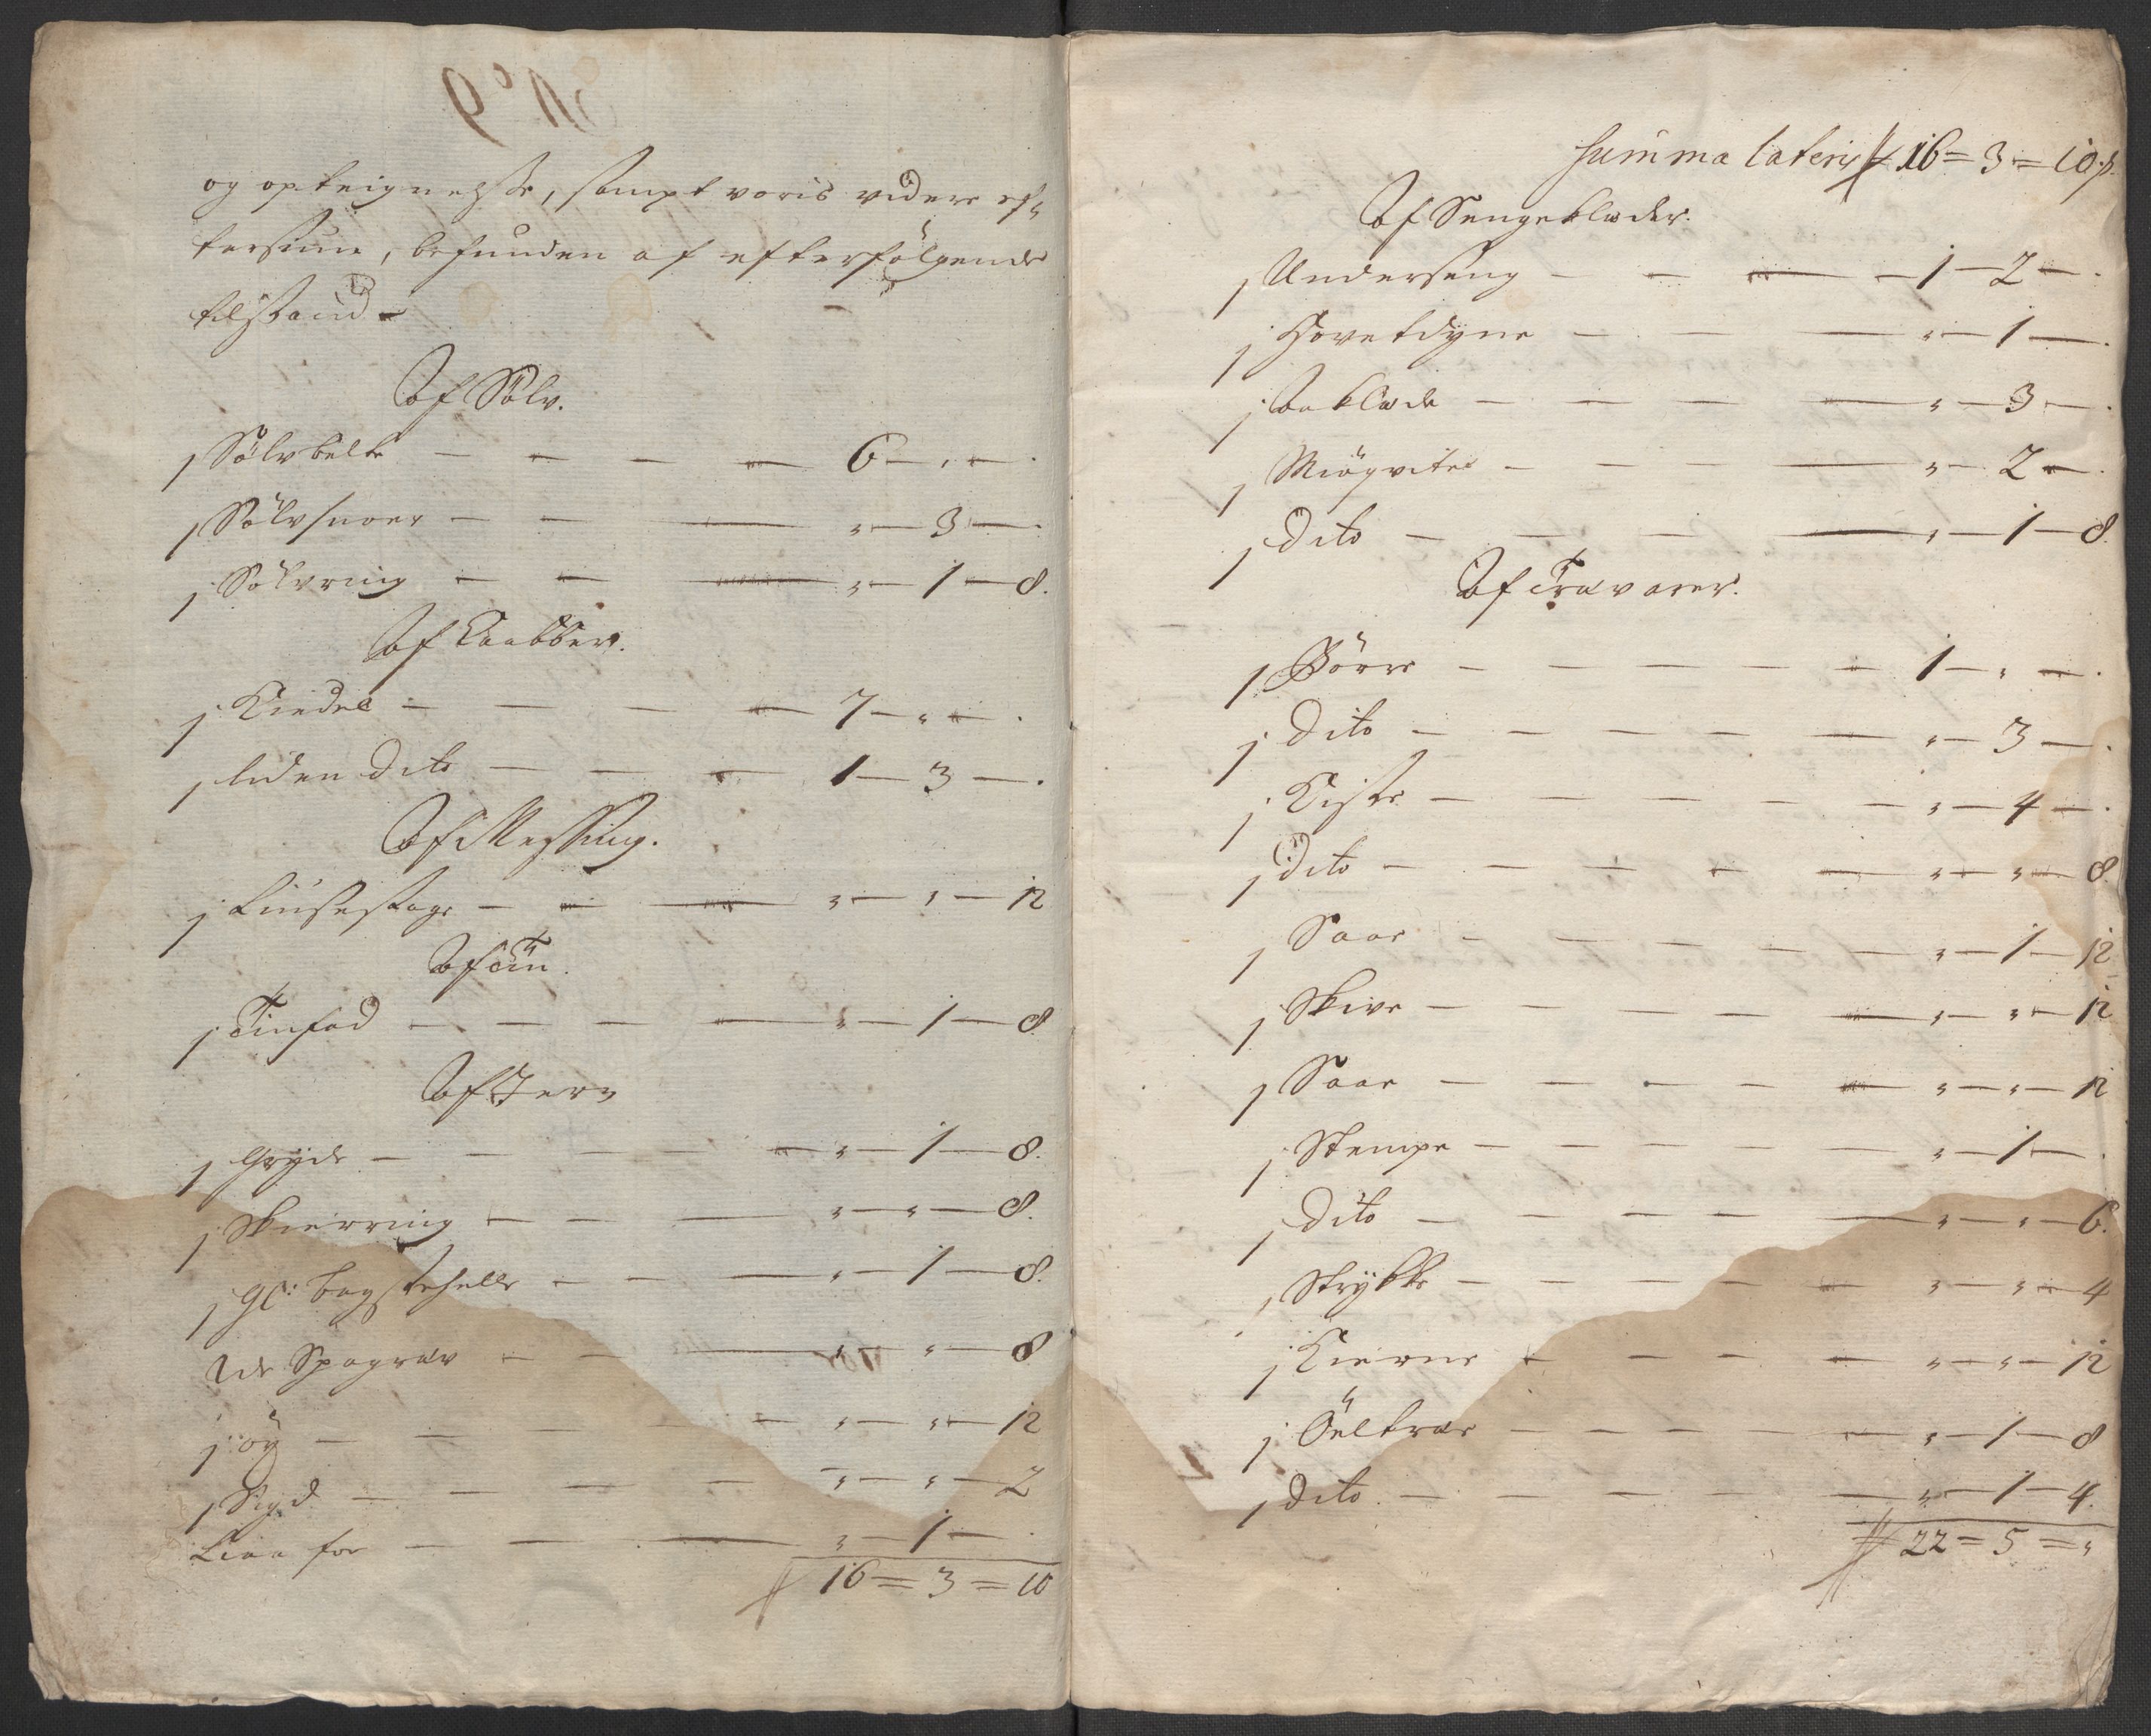 og opteignelse, sampt voris videre ef-
tersiun, befunden af efterfølgende
tilstand
Af Sölv.
1 Sölvbelte — — — — 6 — „ — .
1 Sölvsnoer — — — „ — 3 — .
1 Sölvring — — — „ — 1 — 8.
Af Kaabber.
1 Kiedel — — — — 7 — „ — .
1 liden Dito — — — 1 — 3 — .
Af Messing.
1 Liusestage — — — „ — „ — 12
Af Tin.
1 Tinfad — — — — „ — 1 — 8
Af Jern
1 Gryde — — — — „ — 1 — 8.
1 Skierring — — — „ — „ — 8.
1 gl: bagstehelle — — — „ — 1 — 8.
— — „ — „ — 8
1 öx — — — — „ — „ — 12
1 — — — — „ — „ — 2
Liaa for — — — „ — 1 — .
16 = 3 = 10
Summa lateris 16 = 3 = 10 s.
Af Sengeklæder.
1 Underseng — — — — 1 — 2 — .
1 Hovetdyne — — — „ — 1 — .
1 Aaklæde — — — — „ — 3 — .
1 — — — „ — 2 — .
1 Dito — — — — „ — 1 — 8.
Af Trævarer.
1 — — — — — 1 — „ — .
1 Dito — — — — — „ — 3 — .
1 Kiste — — — — — „ — 4 — .
1 Dito — — — — — „ — „ — 8
1 Saae — — — — — „ — 1 — 12
1 Skive — — — — — „ — „ — 12
1 Saae — — — — — „ — „ — 12
1 Stempe — — — — „ — 1 — .
1 Dito — — — — — „ — „ — 6.
1 Strykke — — — — „ — „ — 4
1 Kierne — — — — „ — „ — 12
1 Öeltræe — — — — „ — 1 — 8
1 Dito — — — — — „ — 1 — 4.
22 = 5 = „